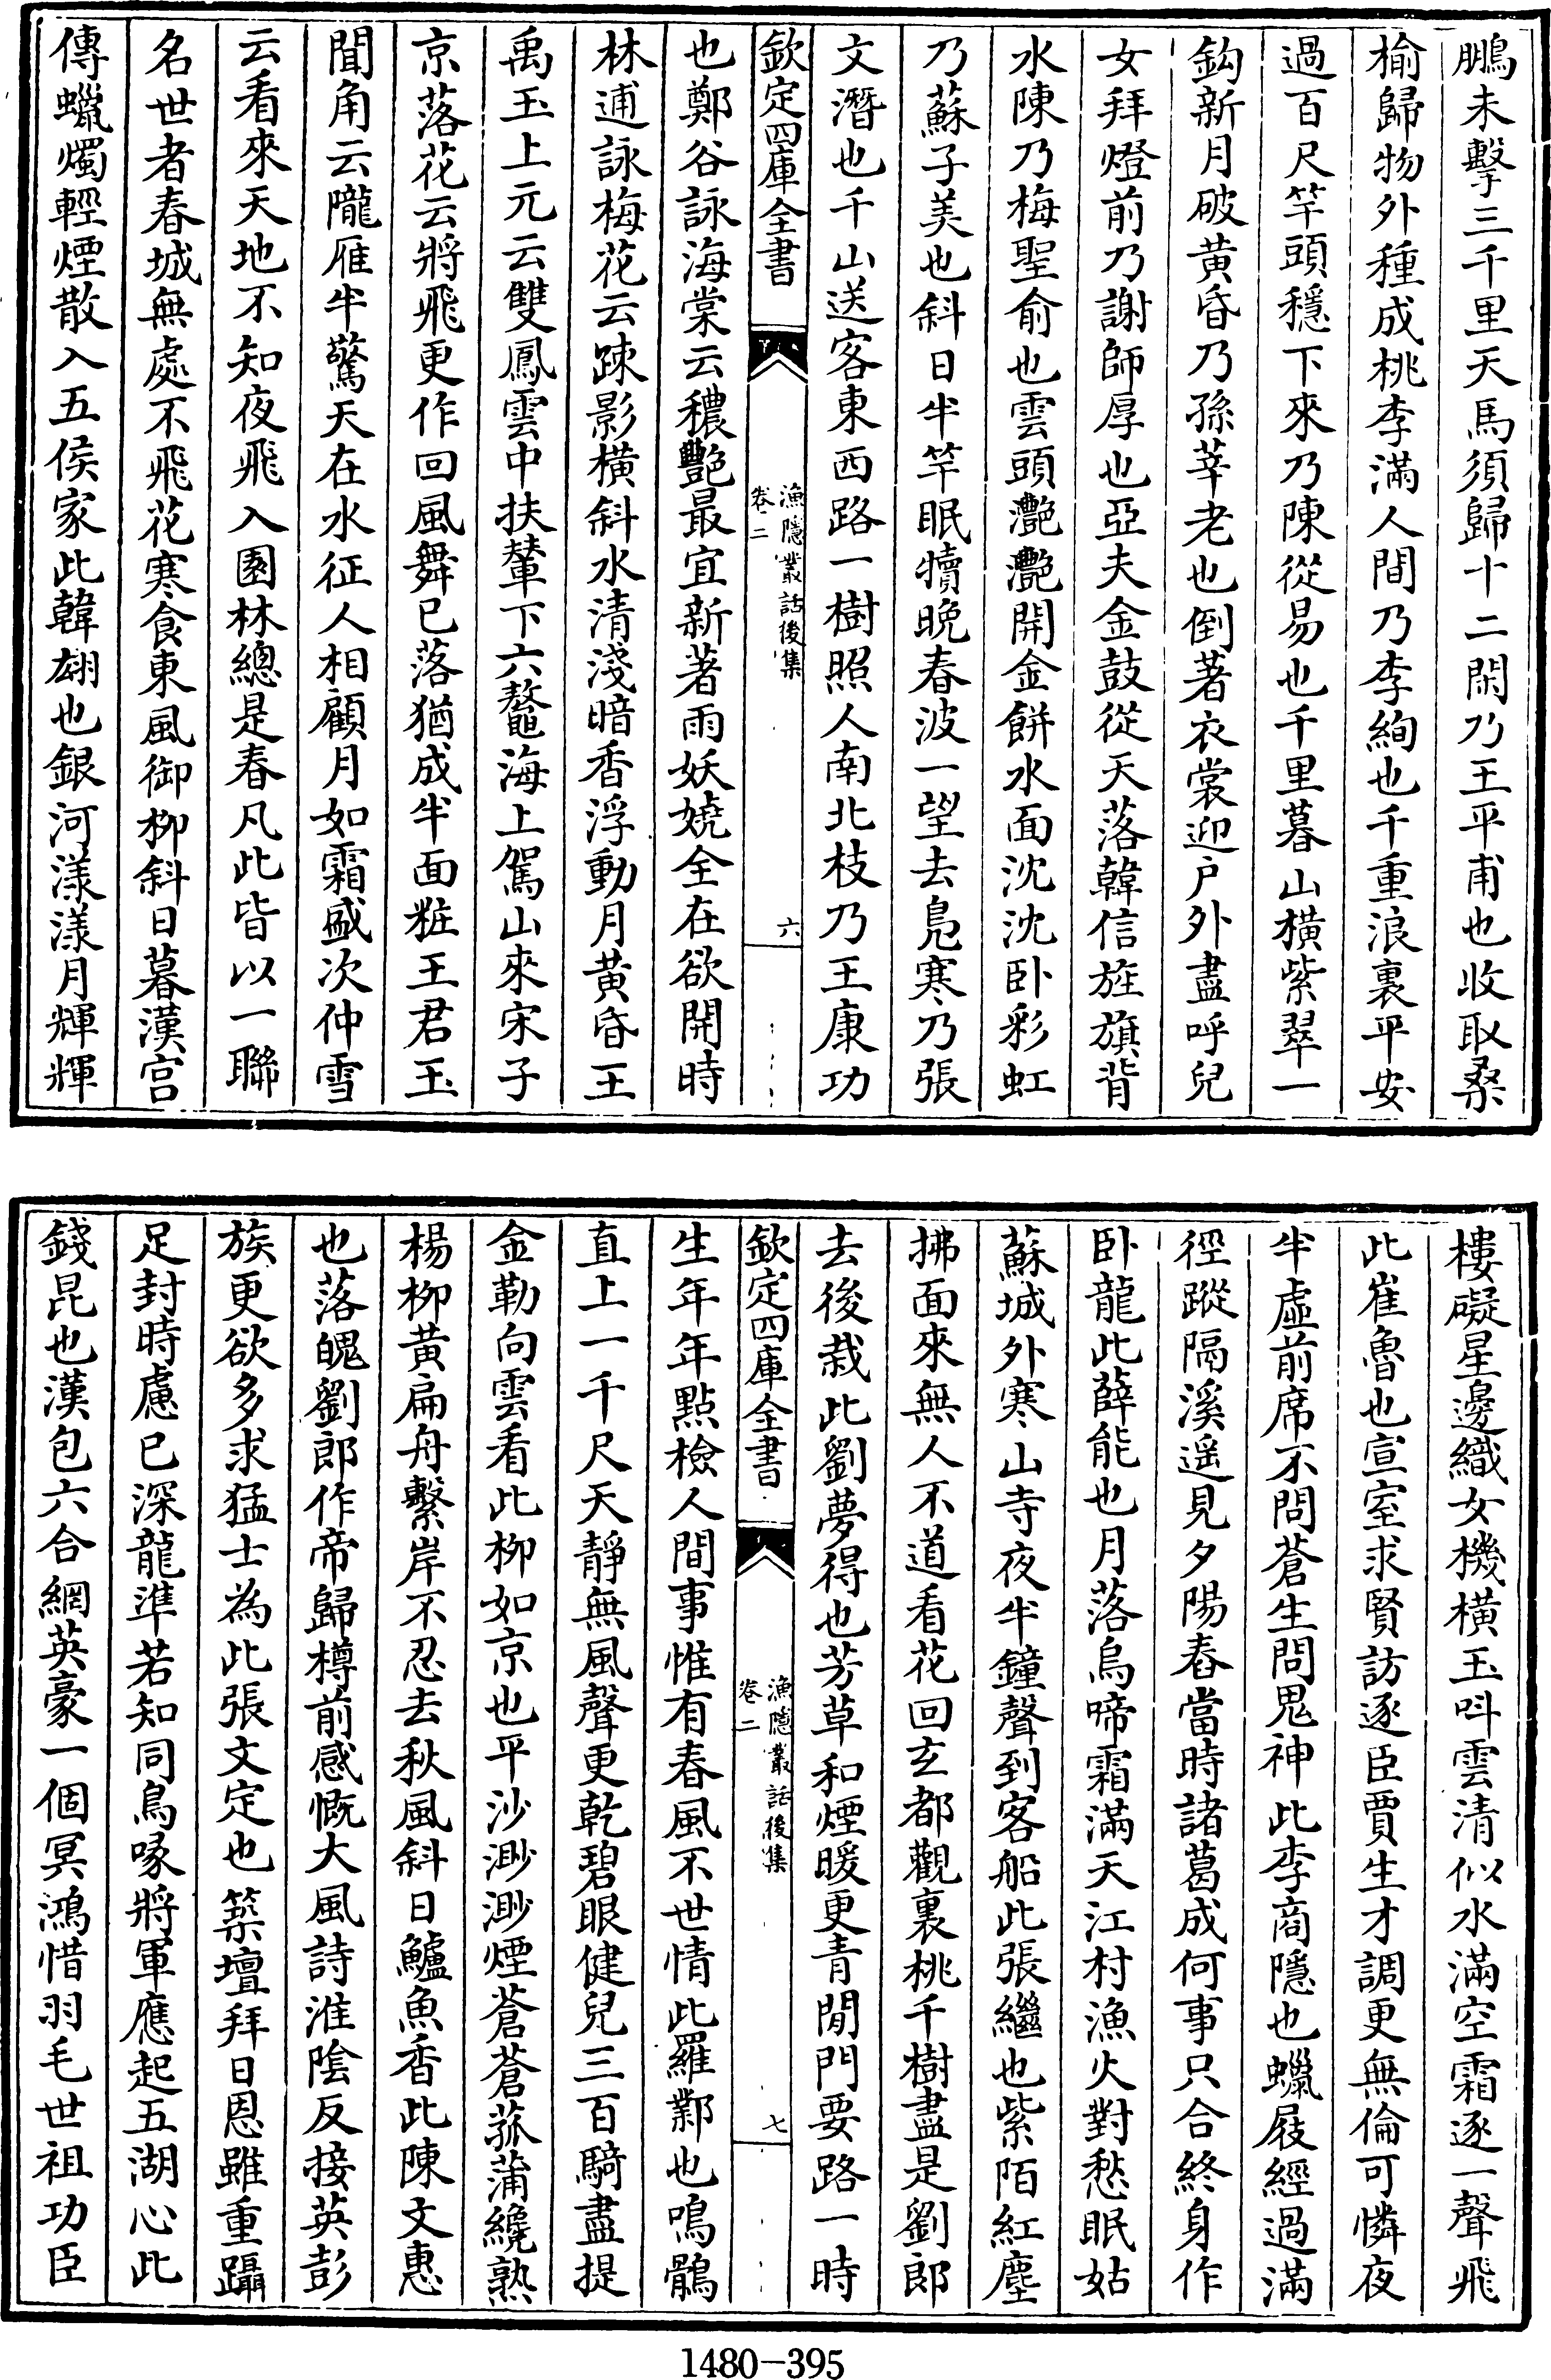 鵬未擊三千里天馬須歸十二閑乃王平甫也收取桑
榆歸物外種成桃李滿人間乃李絢也千重浪裏平安
過百尺竿頭穩下來乃陳從易也千里暮山橫紫翠一
鈎新月破黃昏乃孫莘老也倒著衣裳迎户外盡呼兒
女拜燈前乃謝師厚也亞夫金鼓從天落韓信旌旗背
水陳乃梅聖俞也雲頭灔灔開金餅水面沈沈卧彩虹
乃蘇子美也斜日半竿眠犢晩春波一望去鳬寒乃張
文潛也千山送客東西路一樹照人南北枝乃王康功
欽定四庫全書
漁隱叢話後集
卷二
六
也鄭谷詠海棠云穠艷最宜新著雨妖嬈全在欲開時
林逋詠梅花云疎影橫斜水清淺暗香浮動月黃昏王
禹玉上元云雙鳳雲中扶輦下六鼇海上駕山來宋子
京落花云將飛更作回風舞已落猶成半面粧王君玉
聞角云隴雁半驚天在水征人相顧月如霜盛次仲雪
云看來天地不知夜飛入園林總是春凡此皆以一聯
名世者春城無處不飛花寒食東風御柳斜日暮漢宫
傳蠟燭輕煙散入五侯家此韓翃也銀河漾漾月輝輝
樓礙星邊織女機橫玉呌雲清似水滿空霜逐一聲飛
此崔魯也宣室求賢訪逐臣賈生才調更無倫可憐夜
半虛前席不問蒼生問鬼神此李商隱也蠟屐經過滿
徑蹤隔溪遥見夕陽舂當時諸葛成何事只合終身作
卧龍此薛能也月落烏啼霜滿天江村漁火對愁眠姑
蘇城外寒山寺夜半鐘聲到客船此張繼也紫陌紅塵
拂面來無人不道看花回玄都觀裏桃千樹盡是劉郎
去後栽此劉夢得也芳草和煙暖更青閒門要路一時
欽定四庫全書
漁隱叢話後集
卷二
七
生年年點檢人間事惟有春風不世情此羅鄴也鳴鶻
直上一千尺天靜無風聲更乾碧眼健兒三百騎盡提
金勒向雲看此柳如京也平沙渺渺煙蒼蒼菰蒲纔熟
楊柳黃扁舟繫岸不忍去秋風斜日鱸魚香此陳文惠
也落魄劉郎作帝歸樽前感慨大風詩淮陰反接英彭
族更欲多求猛士為此張文定也築壇拜日恩雖重躡
足封時慮已深龍準若知同鳥喙將軍應起五湖心此
錢昆也漢包六合網英豪一個冥鴻惜羽毛世祖功臣
1480-395